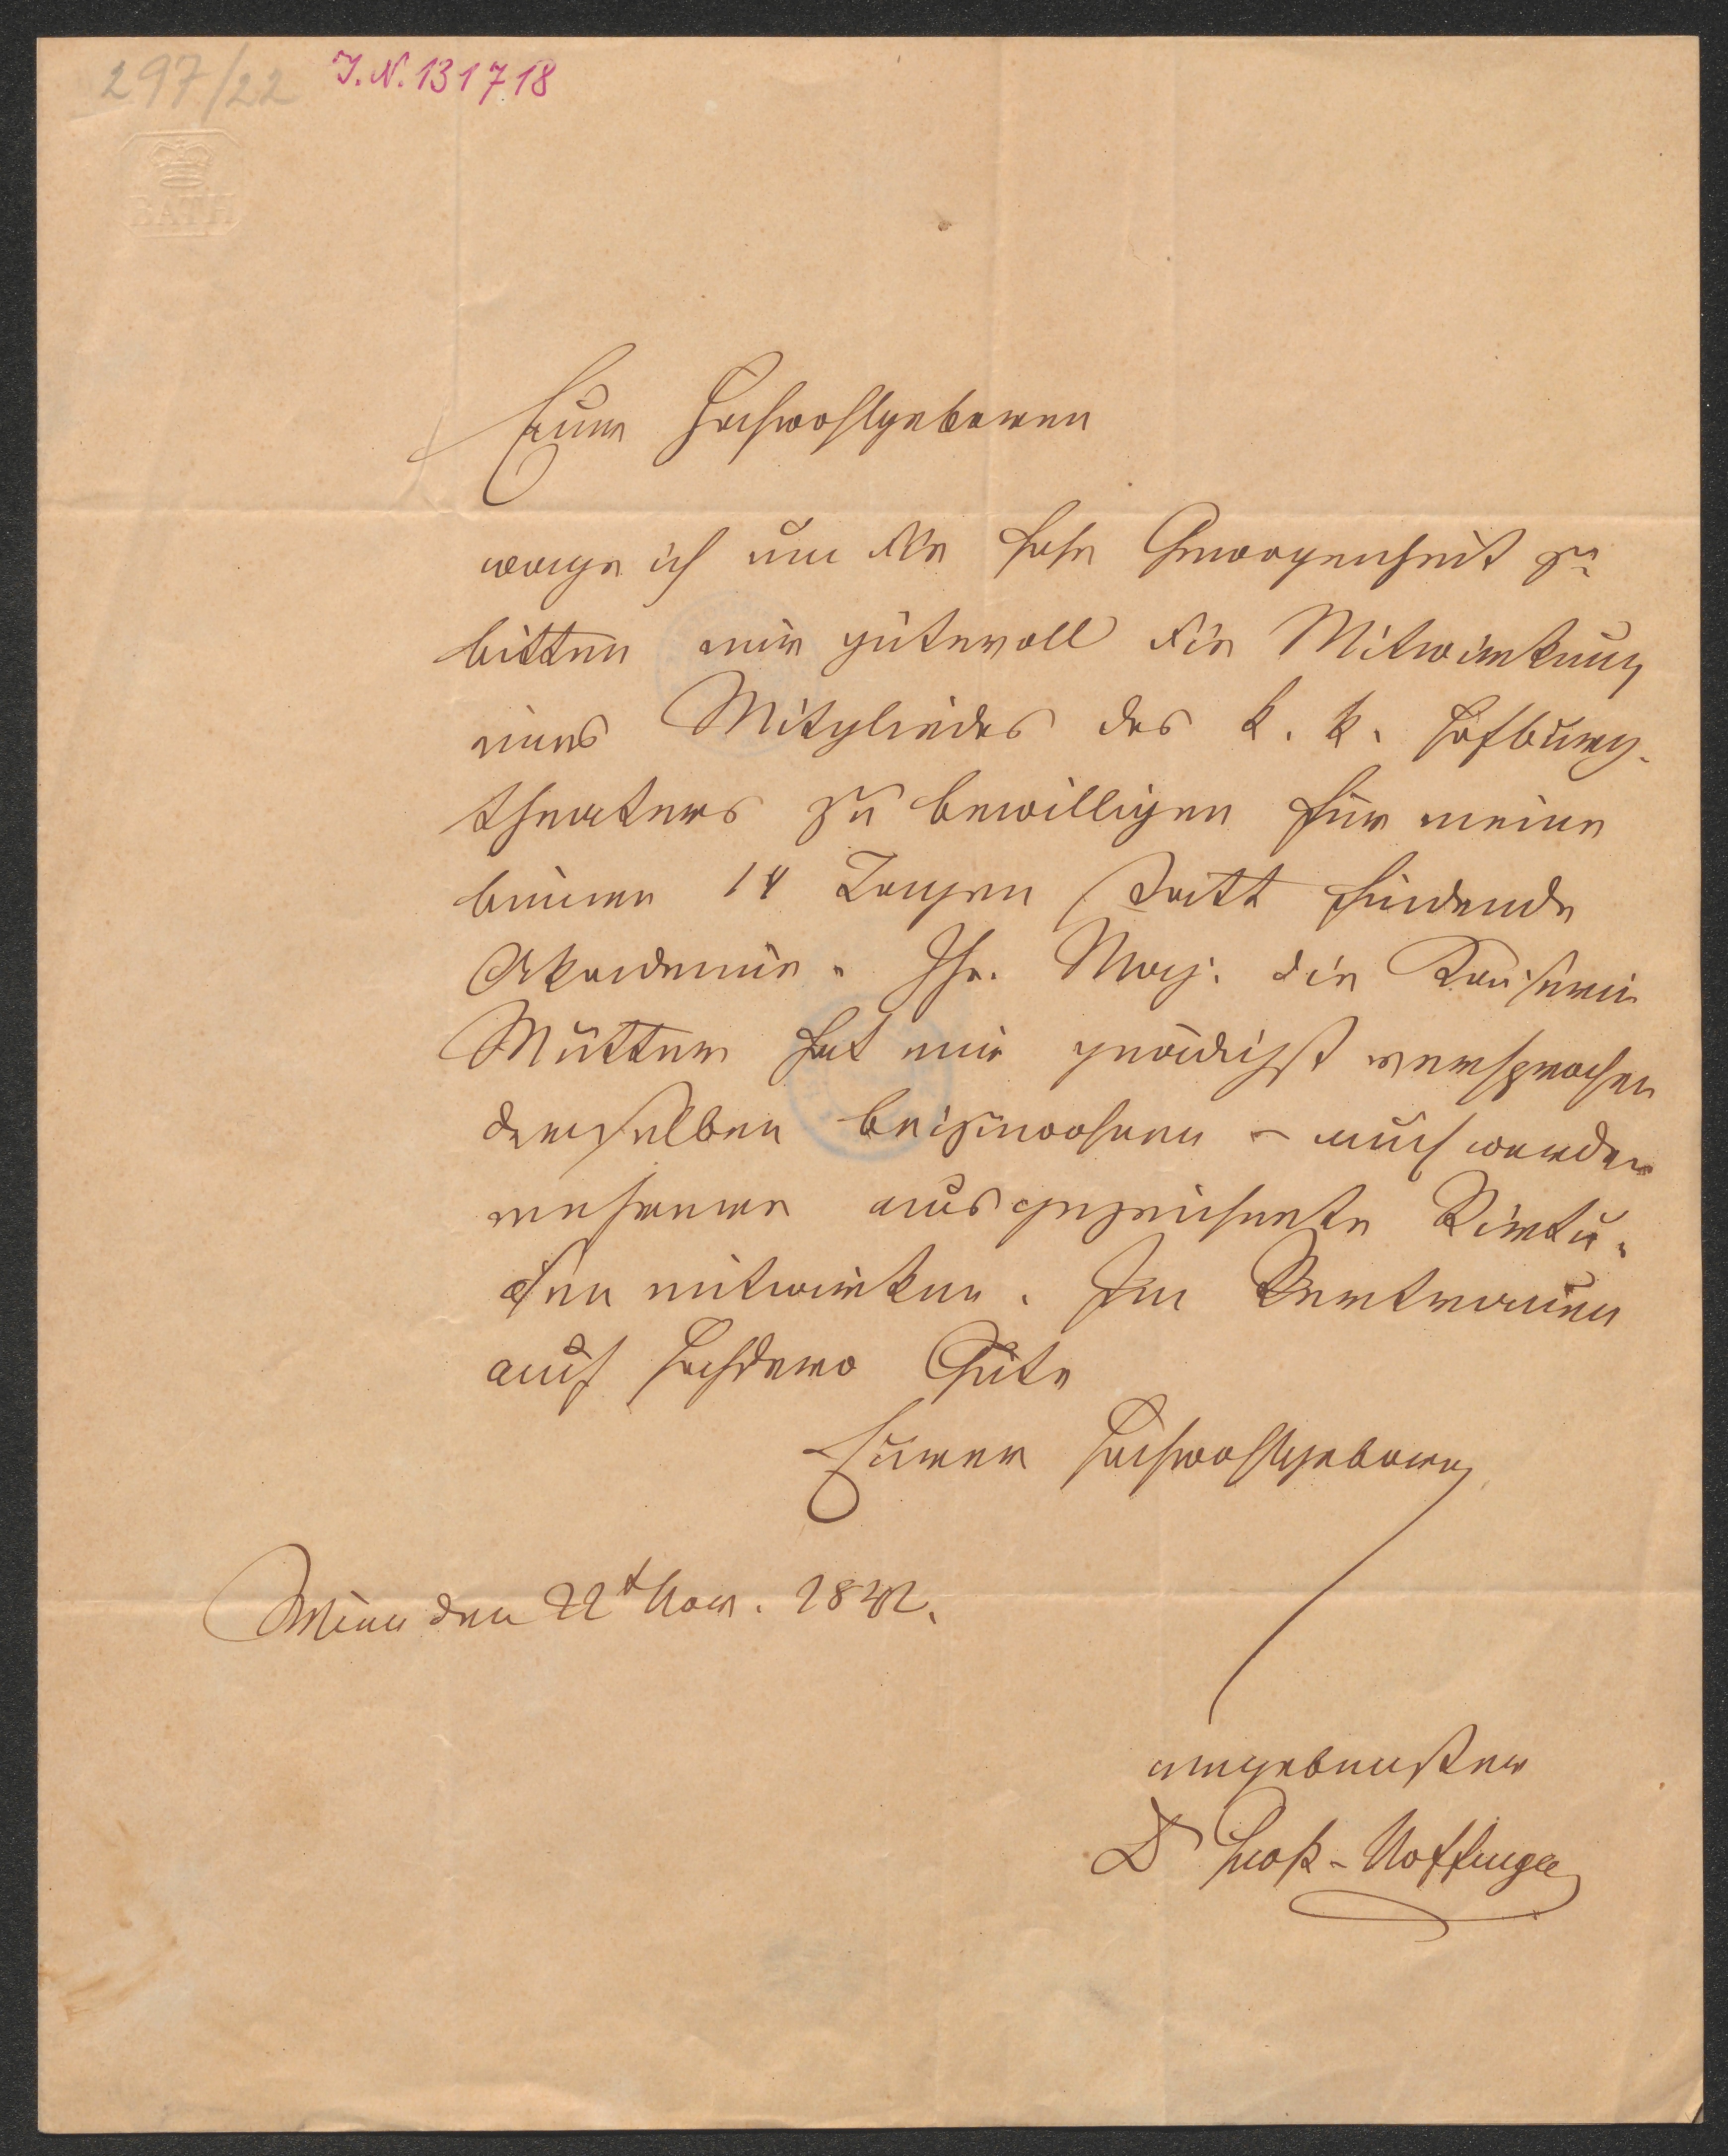 297/22 I.N. 131718
BATH
Euer Hochwohlgeboren
wage ich um die hohe Gewogenheit zu
bitten mir gütevoll die Mitwirkung
eines Mitgliedes des k. k. Hofburg-
theaters zu bewilligen für meine
binnen 14 Tagen Statt findende
Akademie. Ihr. Maj. die Kaiserin
Mutter hat mir gnädigst versprochen
derselben beizuwohnen – auch werden
mehrere ausgezeichnete Virtu-
osen mitwirken. Im Vertrauen
auf Hochdero Güte
Eurer Hochwohlgeboren
Wien den 22t Nov. 1842.
ergebenster
Dr Groß-Hoffinger